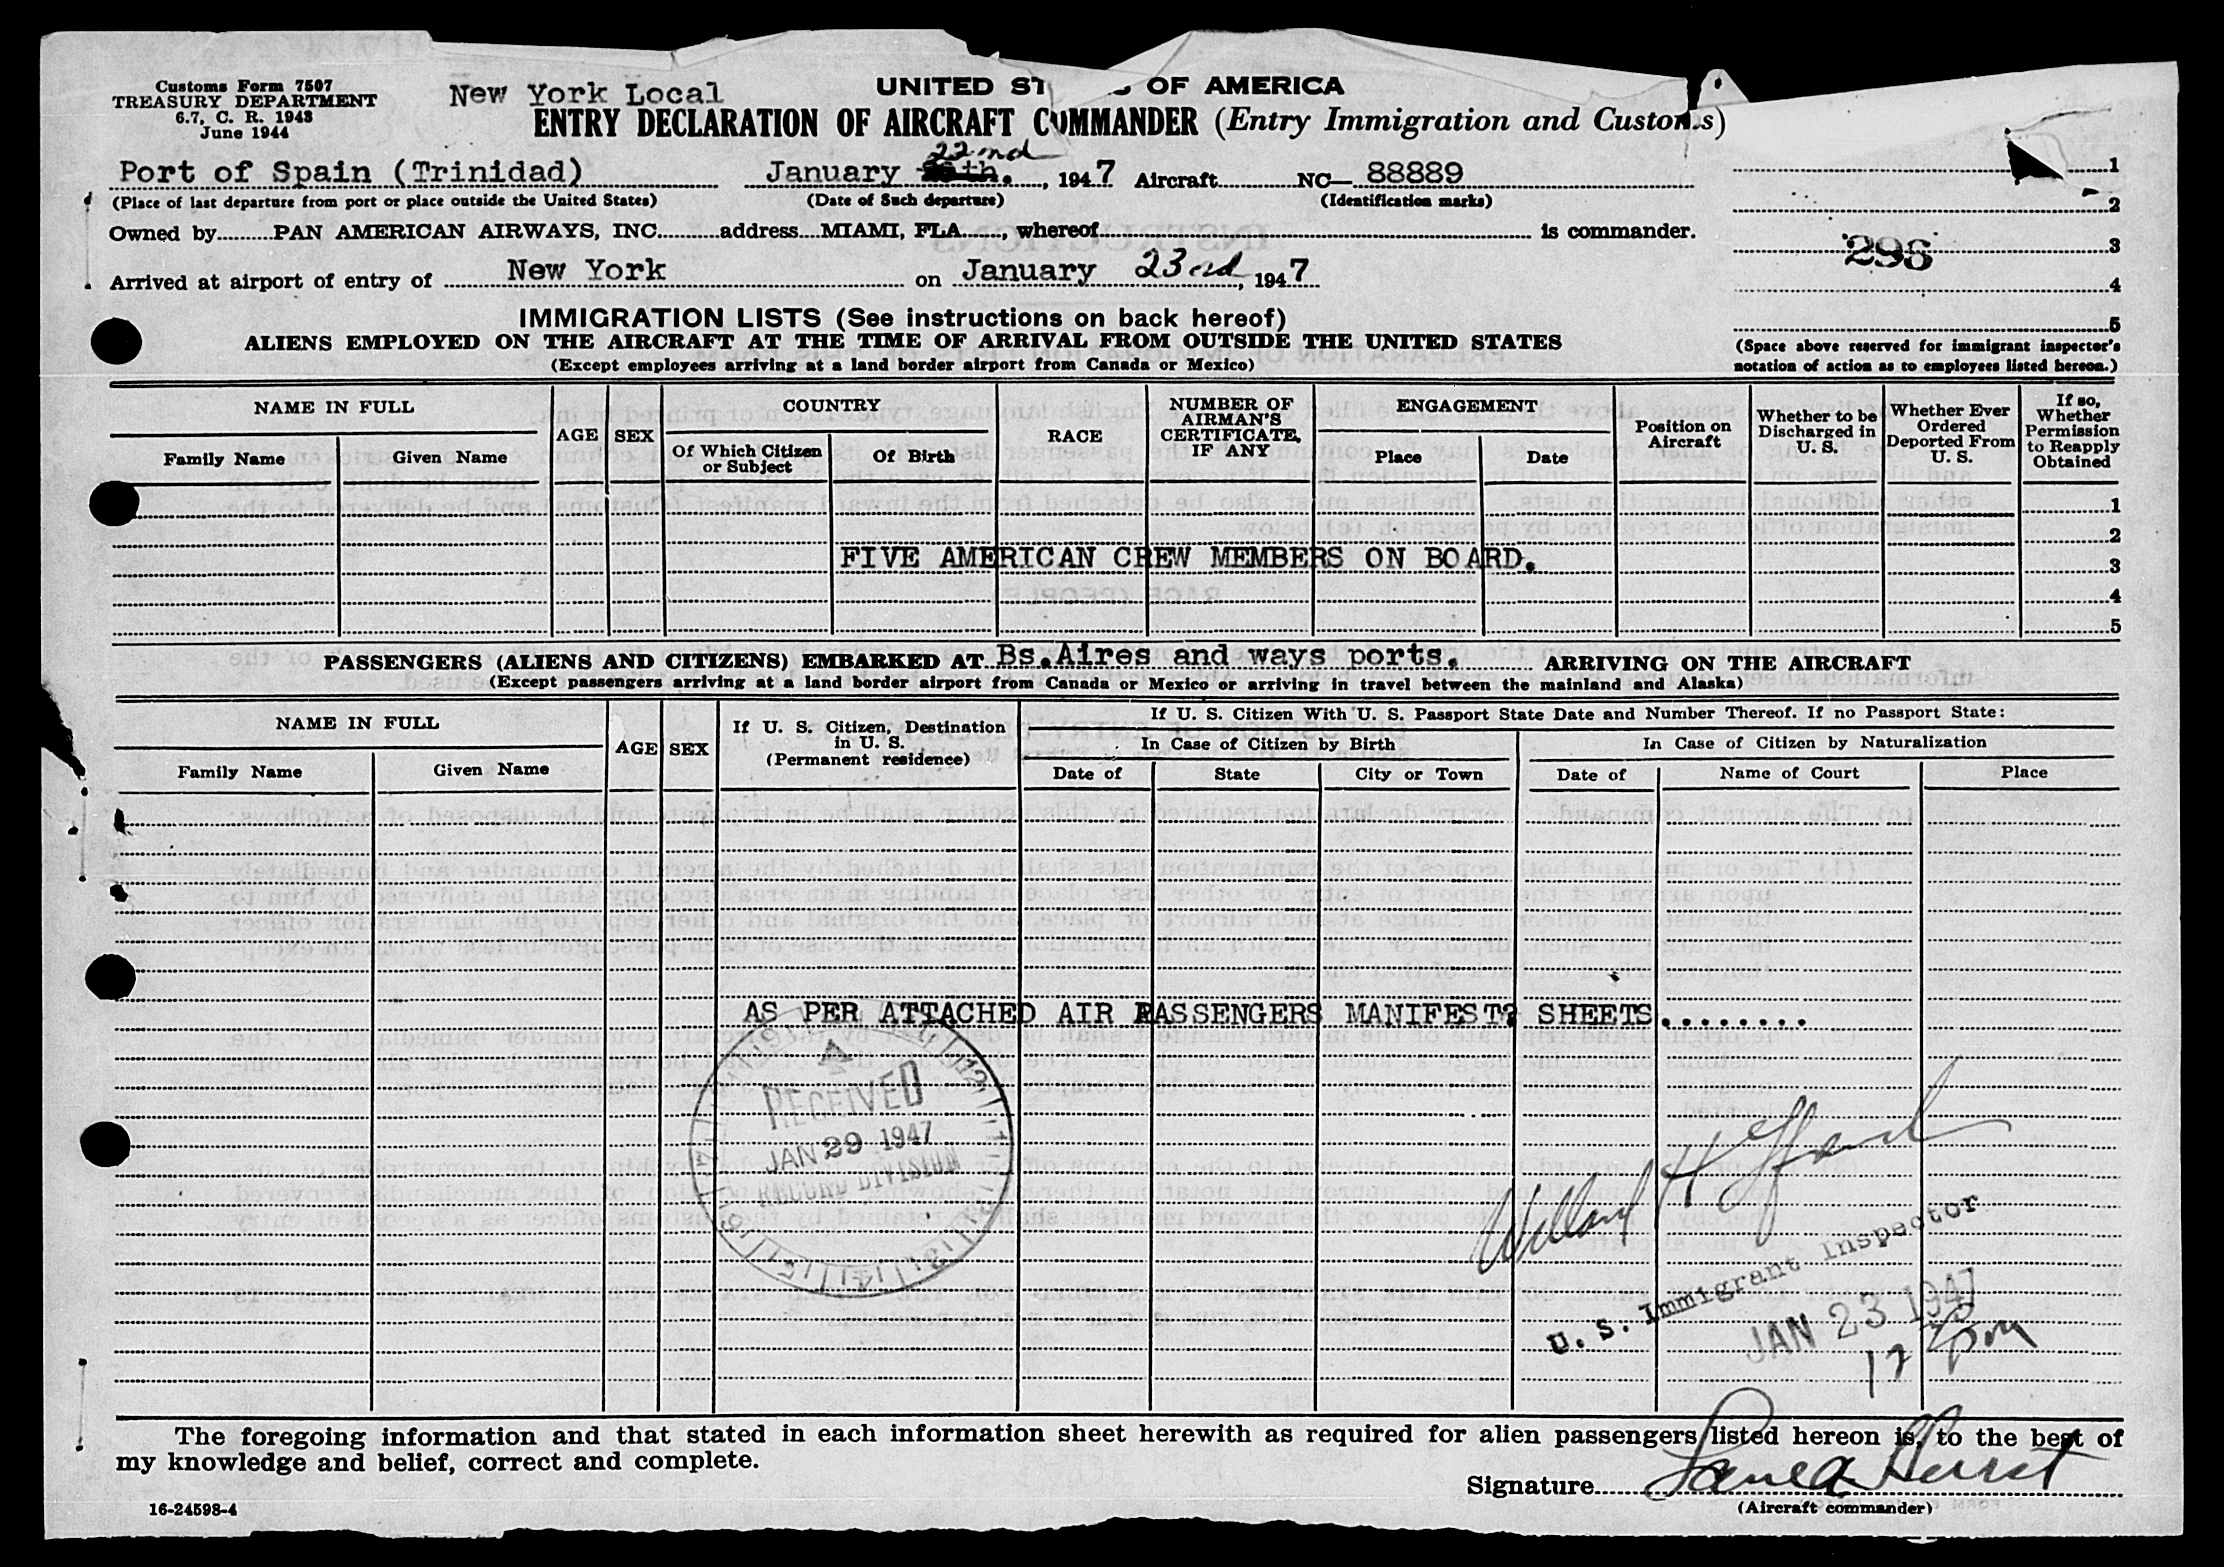 Customs Form 7507
TREASURY DEPARTMENT
6.7, C. R. 1943
June 1944
New York Local
UNITED ST S OF AMERICA
ENTRY DECLARATION OF AIRCRAFT COMMANDER (Entry Immigration and Customs)
Port of Spain (Trinidad) January 22nd, 1947 Aircraft NC— 88889
(Place of last departure from port or place outside the United States) (Date of Such departure) (Identification marks)
Owned by PAN AMERICAN AIRWAYS, INC. address MIAMI, FLA., whereof is commander.
Arrived at airport of entry of New York on January 23rd, 1947
1
2
3
4
5
296
(Space above reserved for immigrant inspector's
notation of action as to employees listed hereon.)
IMMIGRATION LISTS (See instructions on back hereof)
ALIENS EMPLOYED ON THE AIRCRAFT AT THE TIME OF ARRIVAL FROM OUTSIDE THE UNITED STATES
(Except employees arriving at a land border airport from Canada or Mexico)
NAME IN FULL
Family Name Given Name
AGE SEX
COUNTRY
Of Which Citizen or Subject
Of Birth
RACE
NUMBER OF AIRMAN'S CERTIFICATE, IF ANY
ENGAGEMENT
Place Date
Position on Aircraft
Whether to be Discharged in U. S.
Whether Ever Ordered Deported From U. S.
If so, Whether Permission to Reapply Obtained
1
2
FIVE AMERICAN CREW MEMBERS ON BOARD. 3
4
5
PASSENGERS (ALIENS AND CITIZENS) EMBARKED AT Bs.Aires and ways ports. ARRIVING ON THE AIRCRAFT
(Except passengers arriving at a land border airport from Canada or Mexico or arriving in travel between the mainland and Alaska)
NAME IN FULL
Family Name Given Name
AGE SEX
If U. S. Citizen, Destination in U. S.
(Permanent residence)
If U. S. Citizen With U. S. Passport State Date and Number Thereof. If no Passport State:
In Case of Citizen by Birth In Case of Citizen by Naturalization
Date of State City or Town Date of Name of Court Place
AS PER ATTACHED AIR PASSENGERS MANIFEST SHEETS........
RECEIVED
JAN 29 1947
RECORD DIVISION
Willard H
U. S. Immigrant Inspector
JAN 23 1947
The foregoing information and that stated in each information sheet herewith as required for alien passengers listed hereon is, to the best of
my knowledge and belief, correct and complete.
Signature Hurst
(Aircraft commander)
16-24598-4